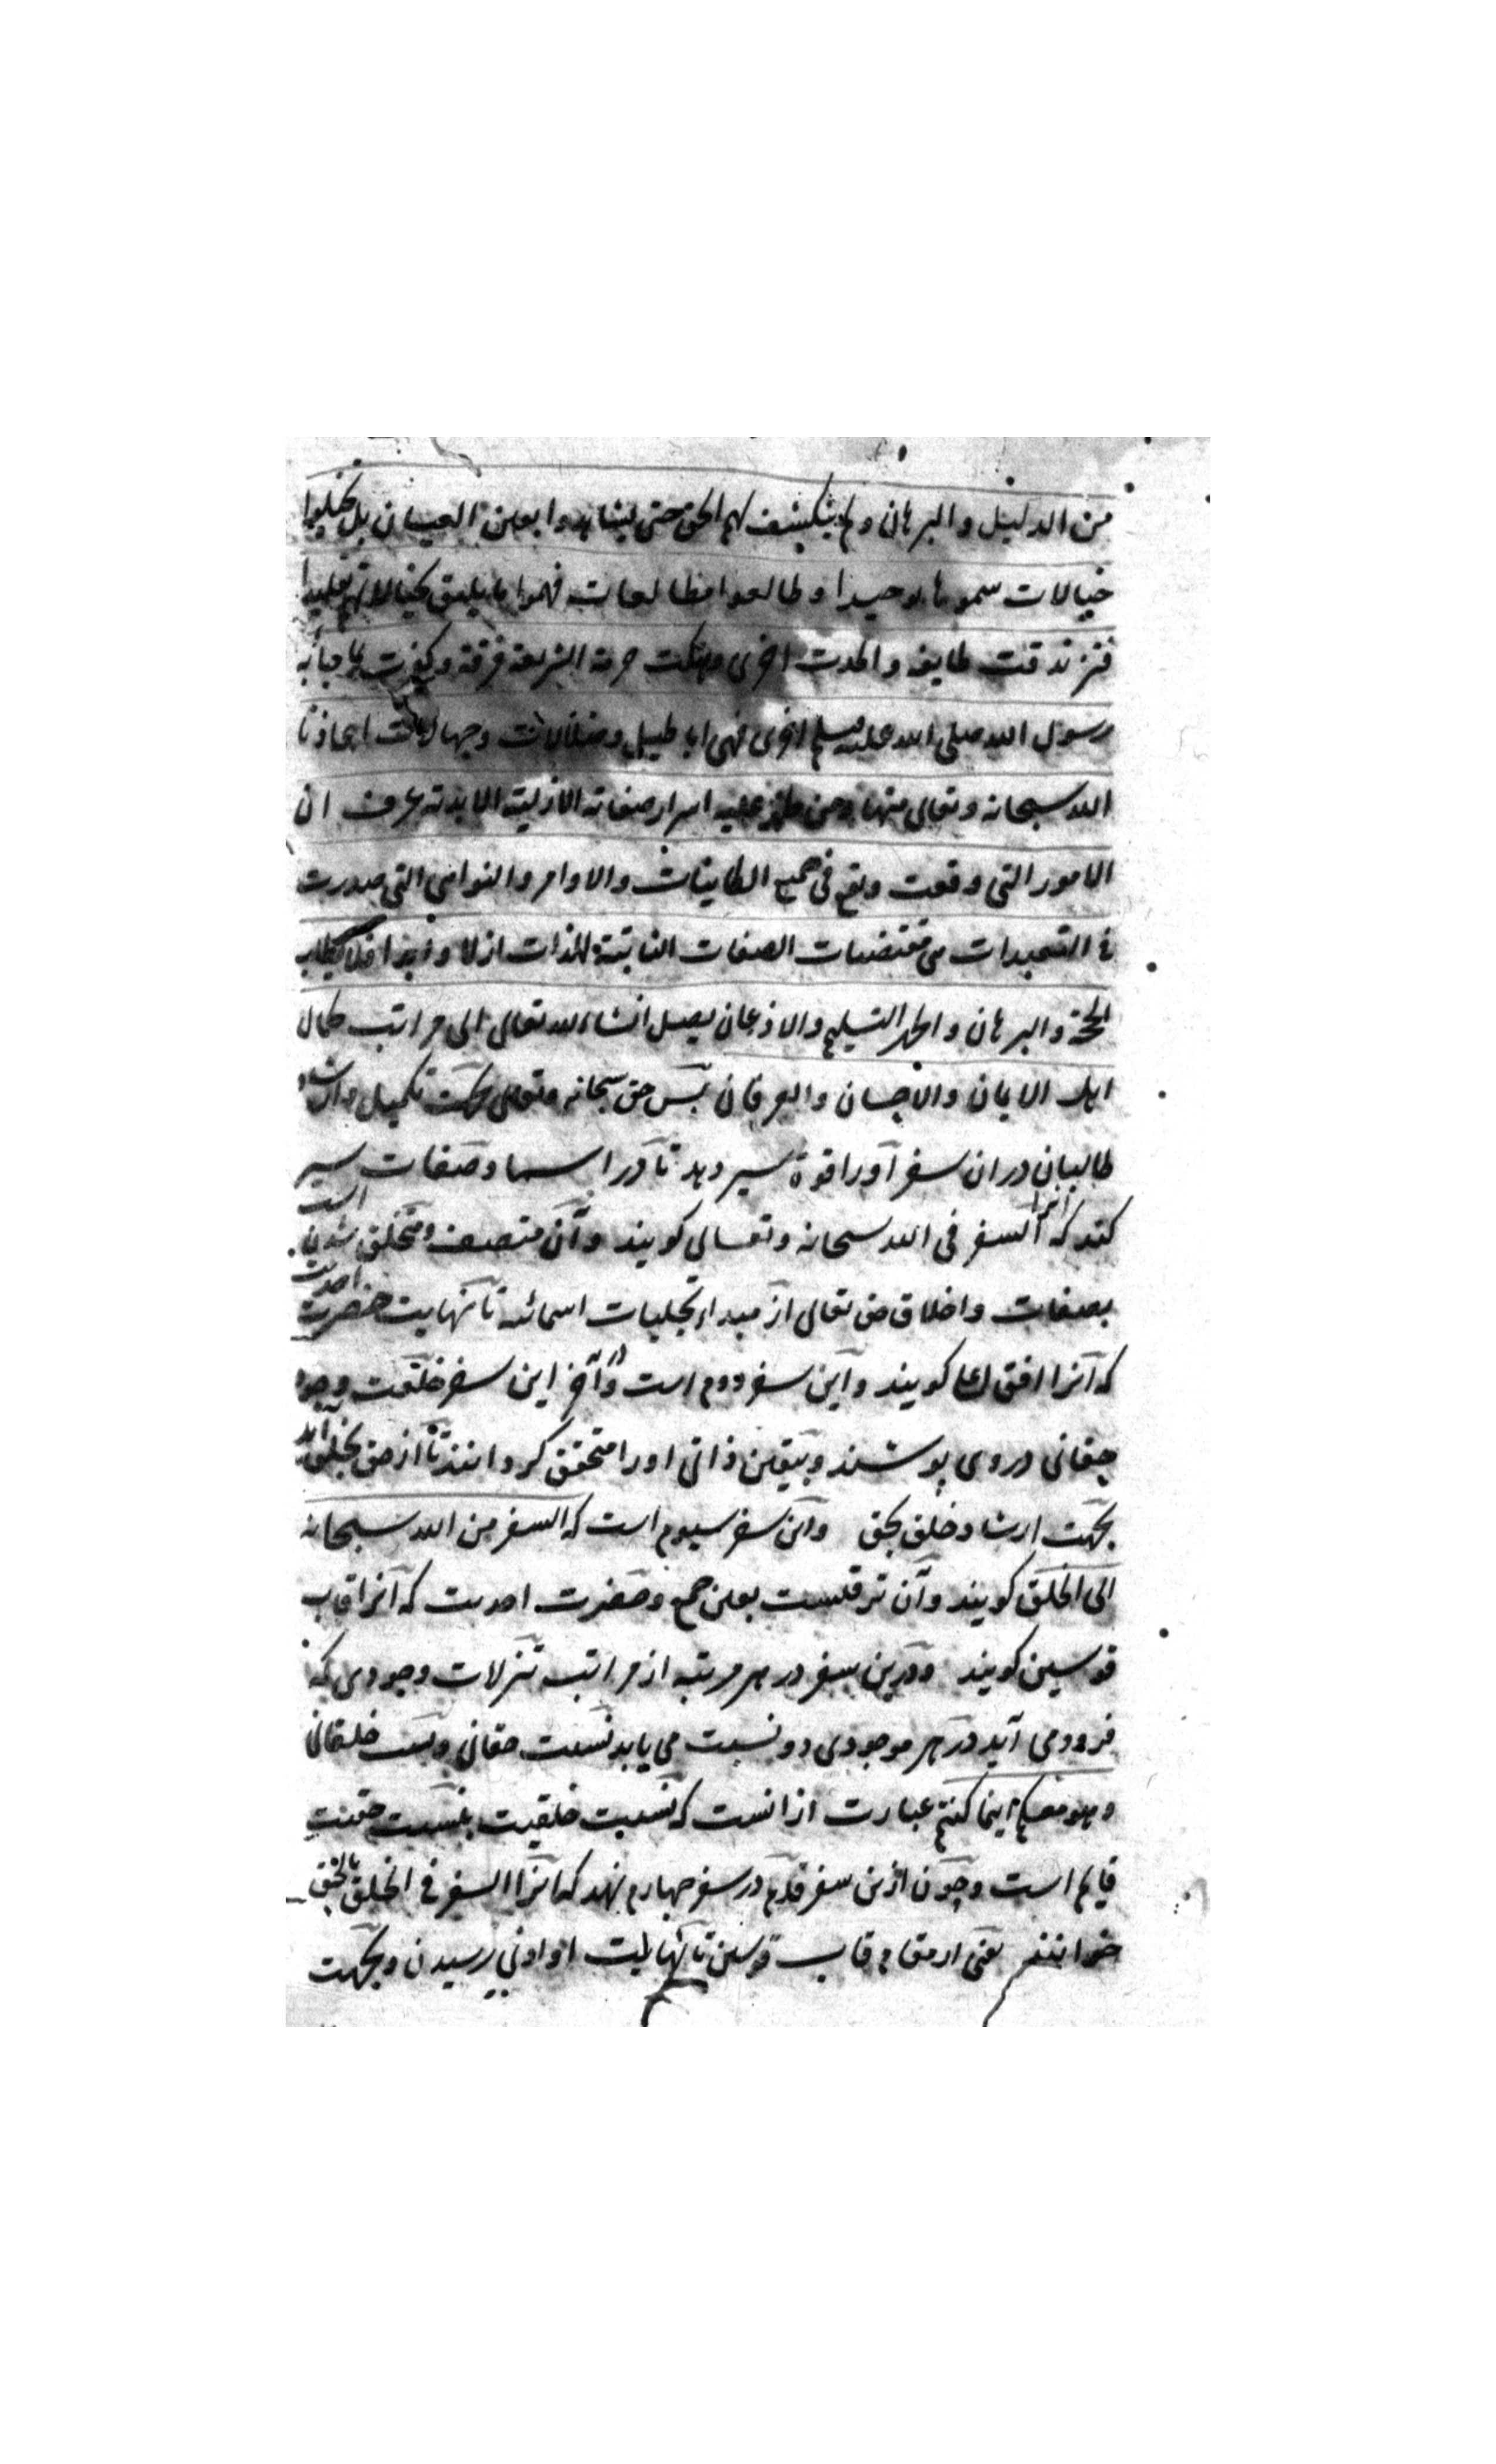 من الدلیل والبرهان ولم ینکشف لهم الحق حتی یشاهدوا بعین العیان بل تخیلوا
خیالات سموها توحیدا و طالعوا مطالعات فهموا ما یلیق بخیالاتهم تقلیدا
فتزندقت طایفة والحدت اخری وهتکت حرمة الشریعة فرقة وکفرت بما جا به
رسول الله صلی الله علیه وسلم اخری فهی اباطیل وضلالات وجهالات اعاذنا
الله سبحانه وتعالی منها ومن ظهر علیه اسرار صفاته الازلیة الابدیة عرف ان
الامور التی وقعت وتقع فی جمیع الکاینات والاوامر والنواهی التی صدرت
فی التعبدات من مقتضیات الصفات الثابتة للذات ازلا وابدا فلا یطلب
الحجة والبرهان والجهر التسلیم والاذعان یصل انشاء الله تعالی الی مراتب کمال
اهل الایمان والاحسان والعرفان پس حق سبحانه وتعالی بجهت تکمیل وارشاد
طالبان دران سفر اورا قوة سیر دهد تا در اسما وصفات سیر
کند که انرا السفر فی الله سبحانه وتعالی کویند وآن متصف ومتخلق شدن است
بصفات واخلاق حق تعالی از مبداء تجلیات اسمائیه تا نهایت حضرت احدیت
که آنرا افق اعلی کویند واین سفر دوم است ودر آخر این سفر خلعت وجود
حقانی در وی پوشند وبیقین ذاتی اورا متحقق کردانند تا از حق بخلق آید
بجهت ارشاد خلق بحق واین سفر سیوم است که السفر من الله سبحانه
الی الخلق کویند وآن ترقیست بعین جمع وحضرت احدیت که آنرا قاب
قوسین کویند ودرین سفر در هر مرتبه از مراتب تنزلات وجودی که
فرود می آید در هر موجودی دو نسبت می یابد نسبت حقانی ونسبت خلقانی
وهو معکم اینما کنتم عبارت ازانست که نسبت خلقیت بنسبت حقیت
قایم است وچون ازین سفر قدم در سفر چهارم نهد که انرا السفر فی الخلق بالحق
خوانند یعنی از مقام قاب قوسین تا نهایت او ادنی رسیدن وبجهت